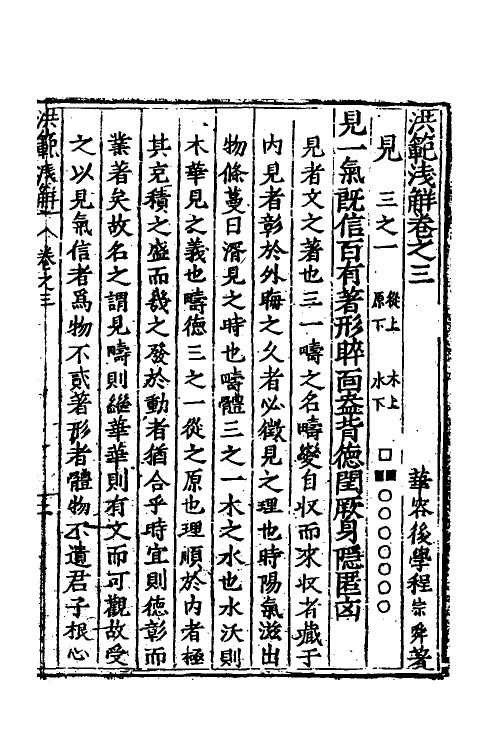 洪範浅解卷之三
華容後學程宗舜著
見 三之一 從上 原下 木上 水下
見一氣既信百有著形睟面盎背德閏厥身隱匿㐫
見者文之著也三一疇之名疇變自収而來収者藏于
内見者彰於外晦之久者必徴見之理也時陽氣滋出
物條蔓日滑見之時也疇體三之一木之水也水沃則
木華見之義也疇德三之一從之原也理順於内者極
其充積之盛而𤼵之發於動者猶合乎時宜則德彰而
業著矣故名之謂見疇則繼華華則有文而可觀故受
之以見氣信者爲物不貳著形者體物不遺君子根心
洪範浅解 卷之三 一